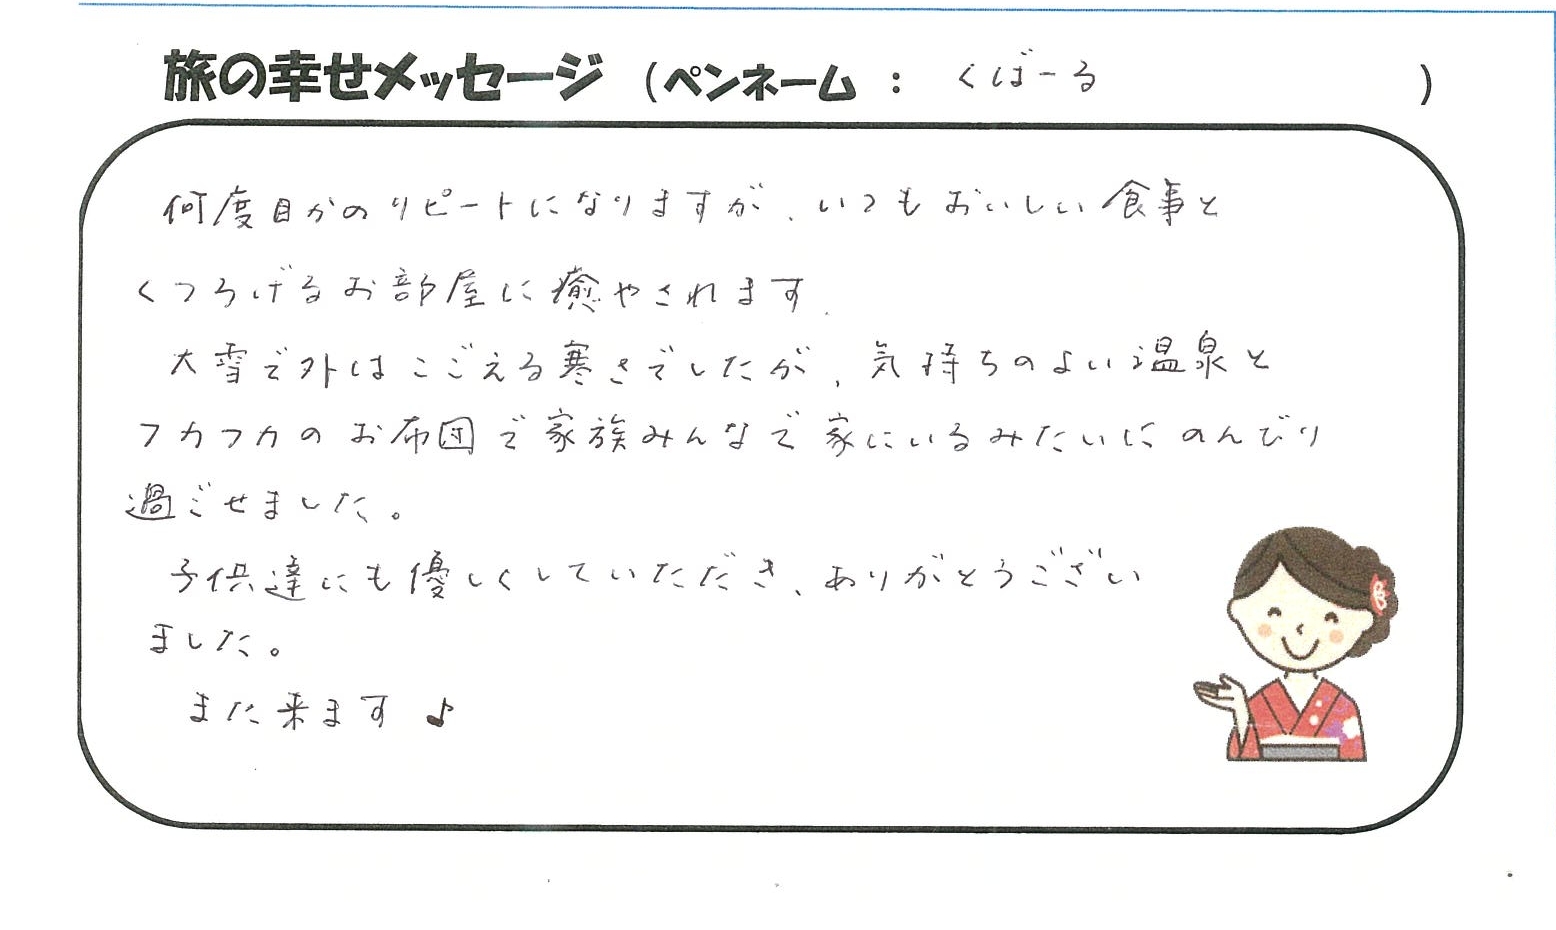 旅の幸せメッセージ (ペンネーム : くばーる )
何度目かのリピートになりますが、いつもおいしい食事と
くつろげるお部屋に癒やされます。
大雪で外はこごえる寒さでしたが、気持ちのよい温泉と
フカフカのお布団で家族みんなで家にいるみたいにのんびり
過ごせました。
子供達にも優しくしていただき、ありがとうござい
ました。
また来ます♪